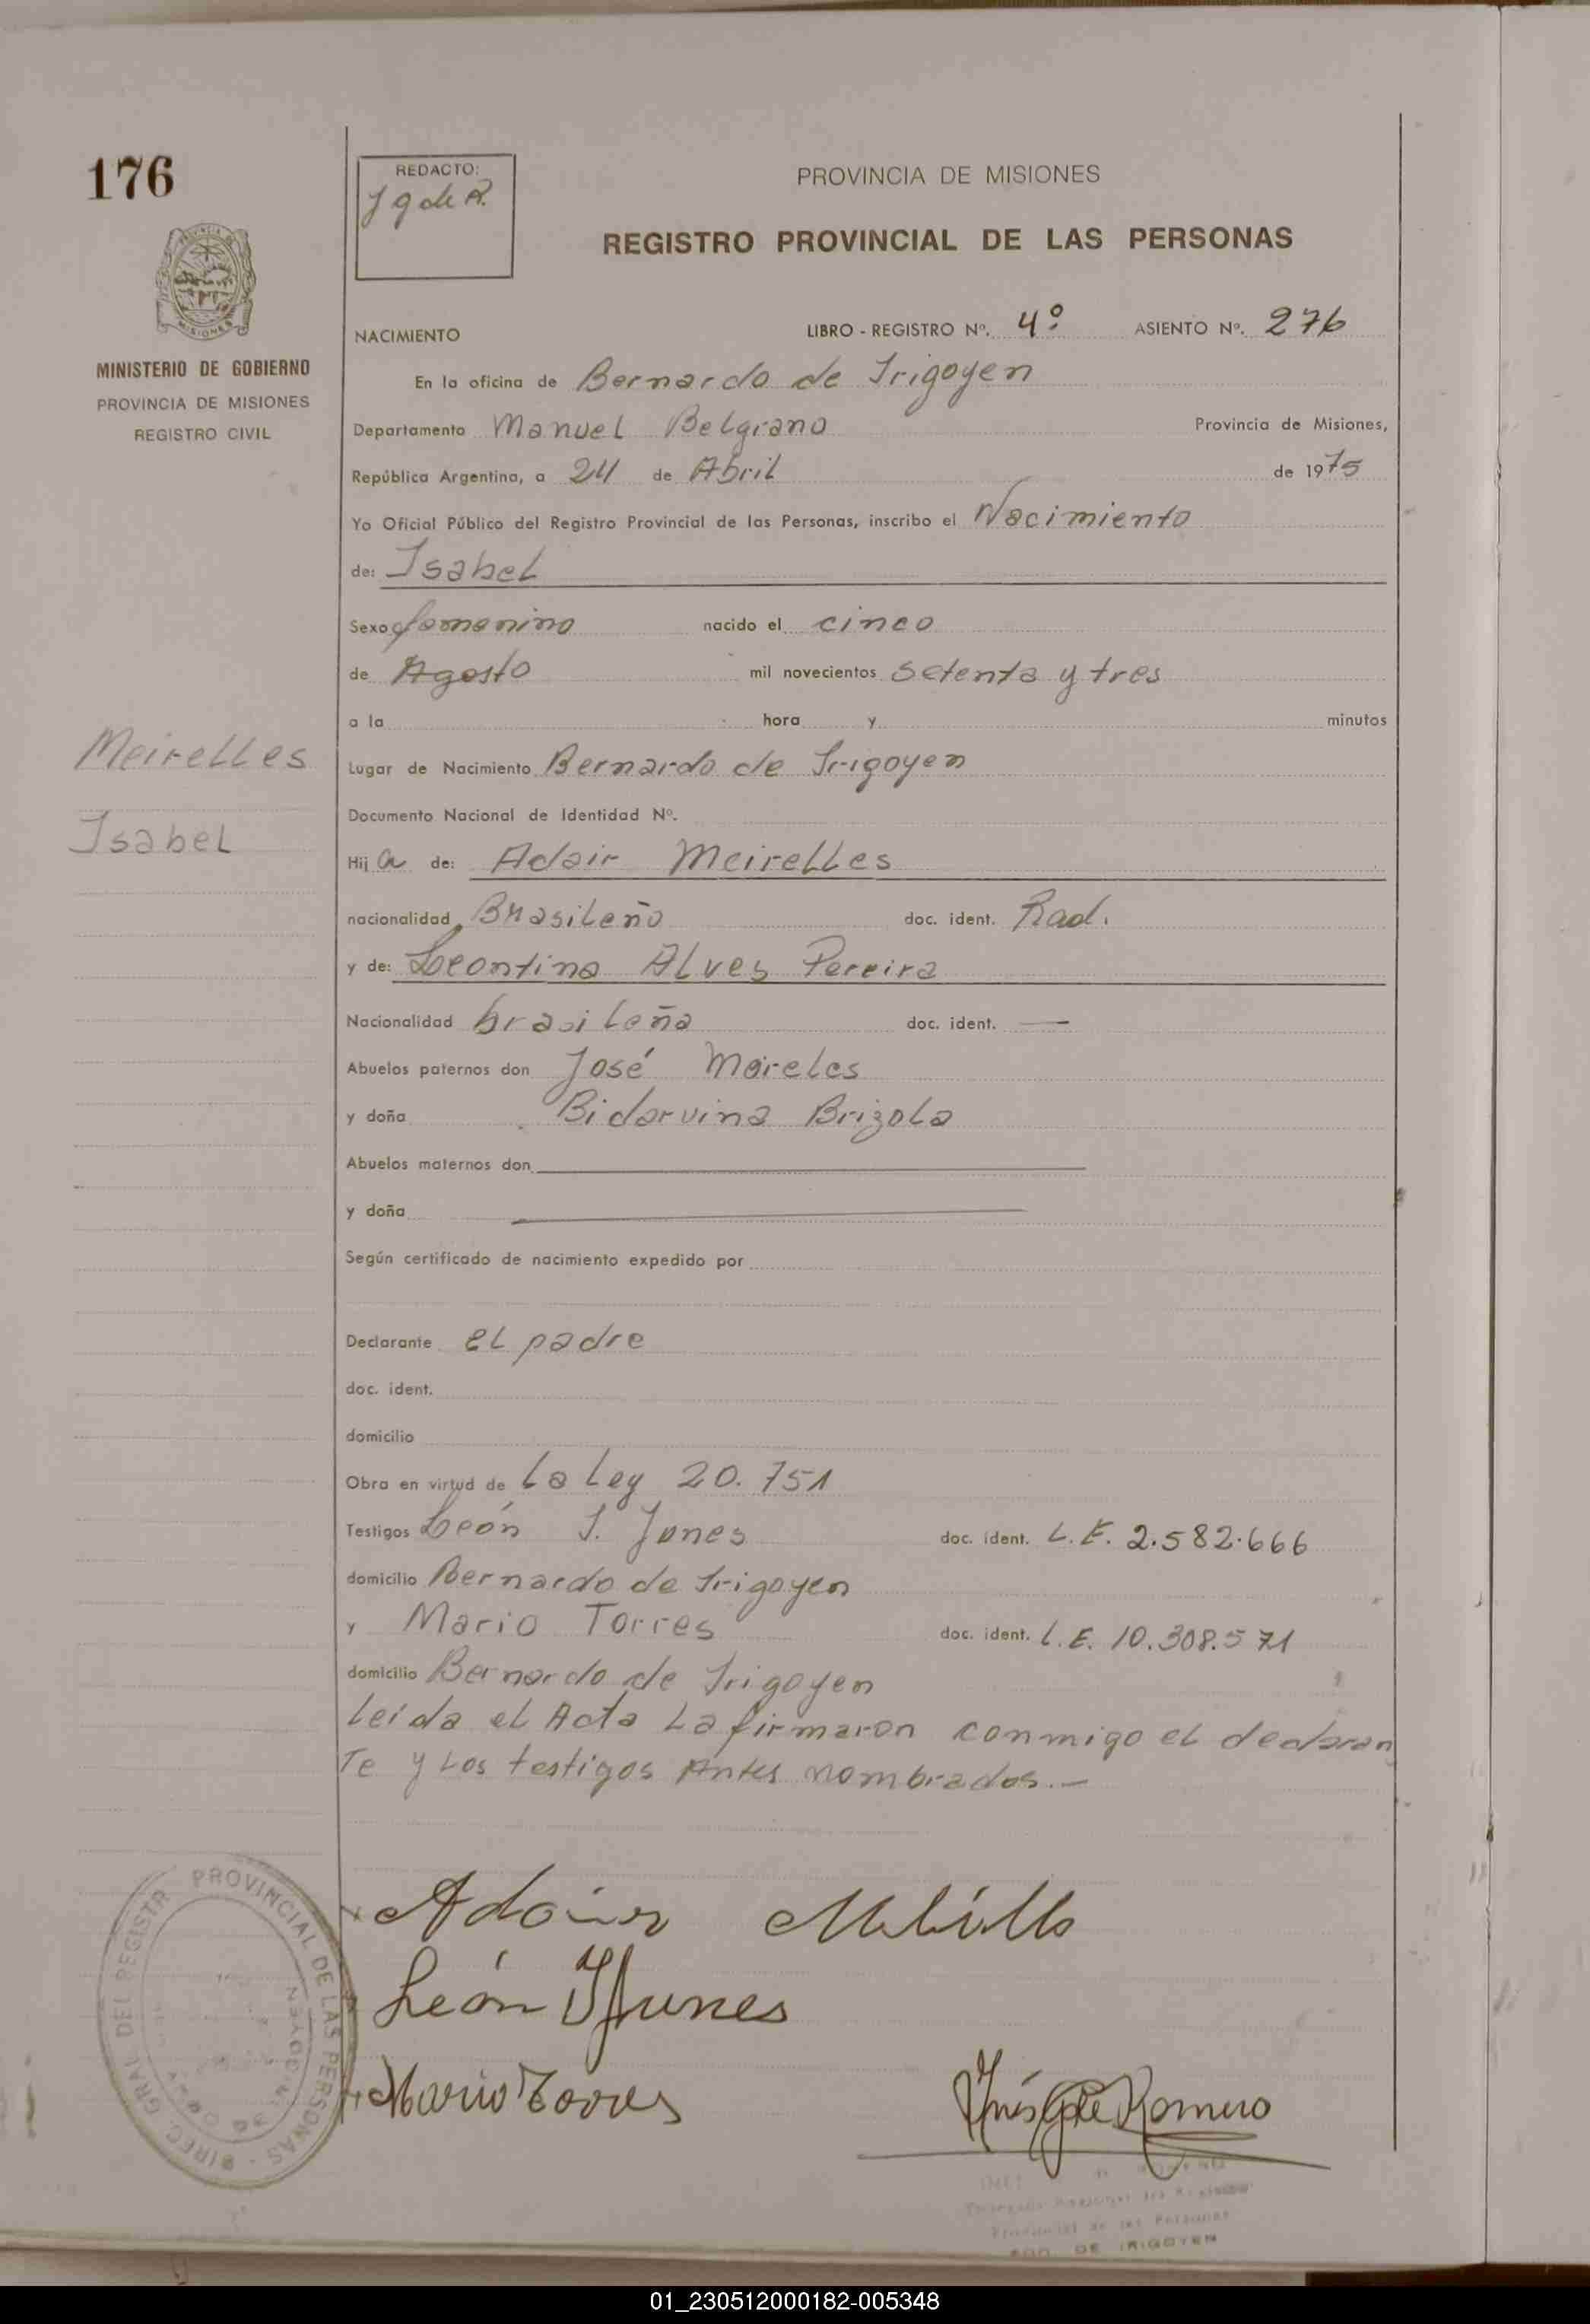 176
REDACTO:
J g de R.
PROVINCIA DE MISIONES
REGISTRO PROVINCIAL DE LAS PERSONAS
MINISTERIO DE GOBIERNO
PROVINCIA DE MISIONES
REGISTRO CIVIL
NACIMIENTO LIBRO - REGISTRO Nº. 4º ASIENTO Nº. 276
En la oficina de Bernardo de Irigoyen
Departamento Manuel Belgrano Provincia de Misiones,
República Argentina, a 24 de Abril de 1975
Yo Oficial Público del Registro Provincial de las Personas, inscribo el Nacimiento
de: Isabel
Sexo femenino nacido el cinco
de Agosto mil novecientos setenta y tres
a la hora y minutos
Meirelles
Lugar de Nacimiento Bernardo de Irigoyen
Documento Nacional de Identidad Nº.
Isabel
Hij a de: Adair Meirelles
nacionalidad Brasileño doc. ident. Rad.
y de: Leontina Alves Pereira
Nacionalidad brasileña doc. ident. —
Abuelos paternos don José Moireles
y doña Bidarvina Brizola
Abuelos maternos don
y doña
Según certificado de nacimiento expedido por
Declarante el padre
doc. ident.
domicilio
Obra en virtud de La Ley 20.751
Testigos León I. Junes doc. ident. L.E. 2.582.666
domicilio Bernardo de Irigoyen
y Mario Torres doc. ident. L.E. 10.308.571
domicilio Bernardo de Irigoyen
leida el Acta La firmaron conmigo el declaran
Te y Los testigos Antes nombrados.—
Adair
León I Junes
Mario Torres
Inés G de Romero
DIREC. GRAL DEL REGISTR PROVINCIAL DE LAS PERSONAS
Provincial de las Personas
BDO. DE IRIGOYEN
01_230512000182-005348